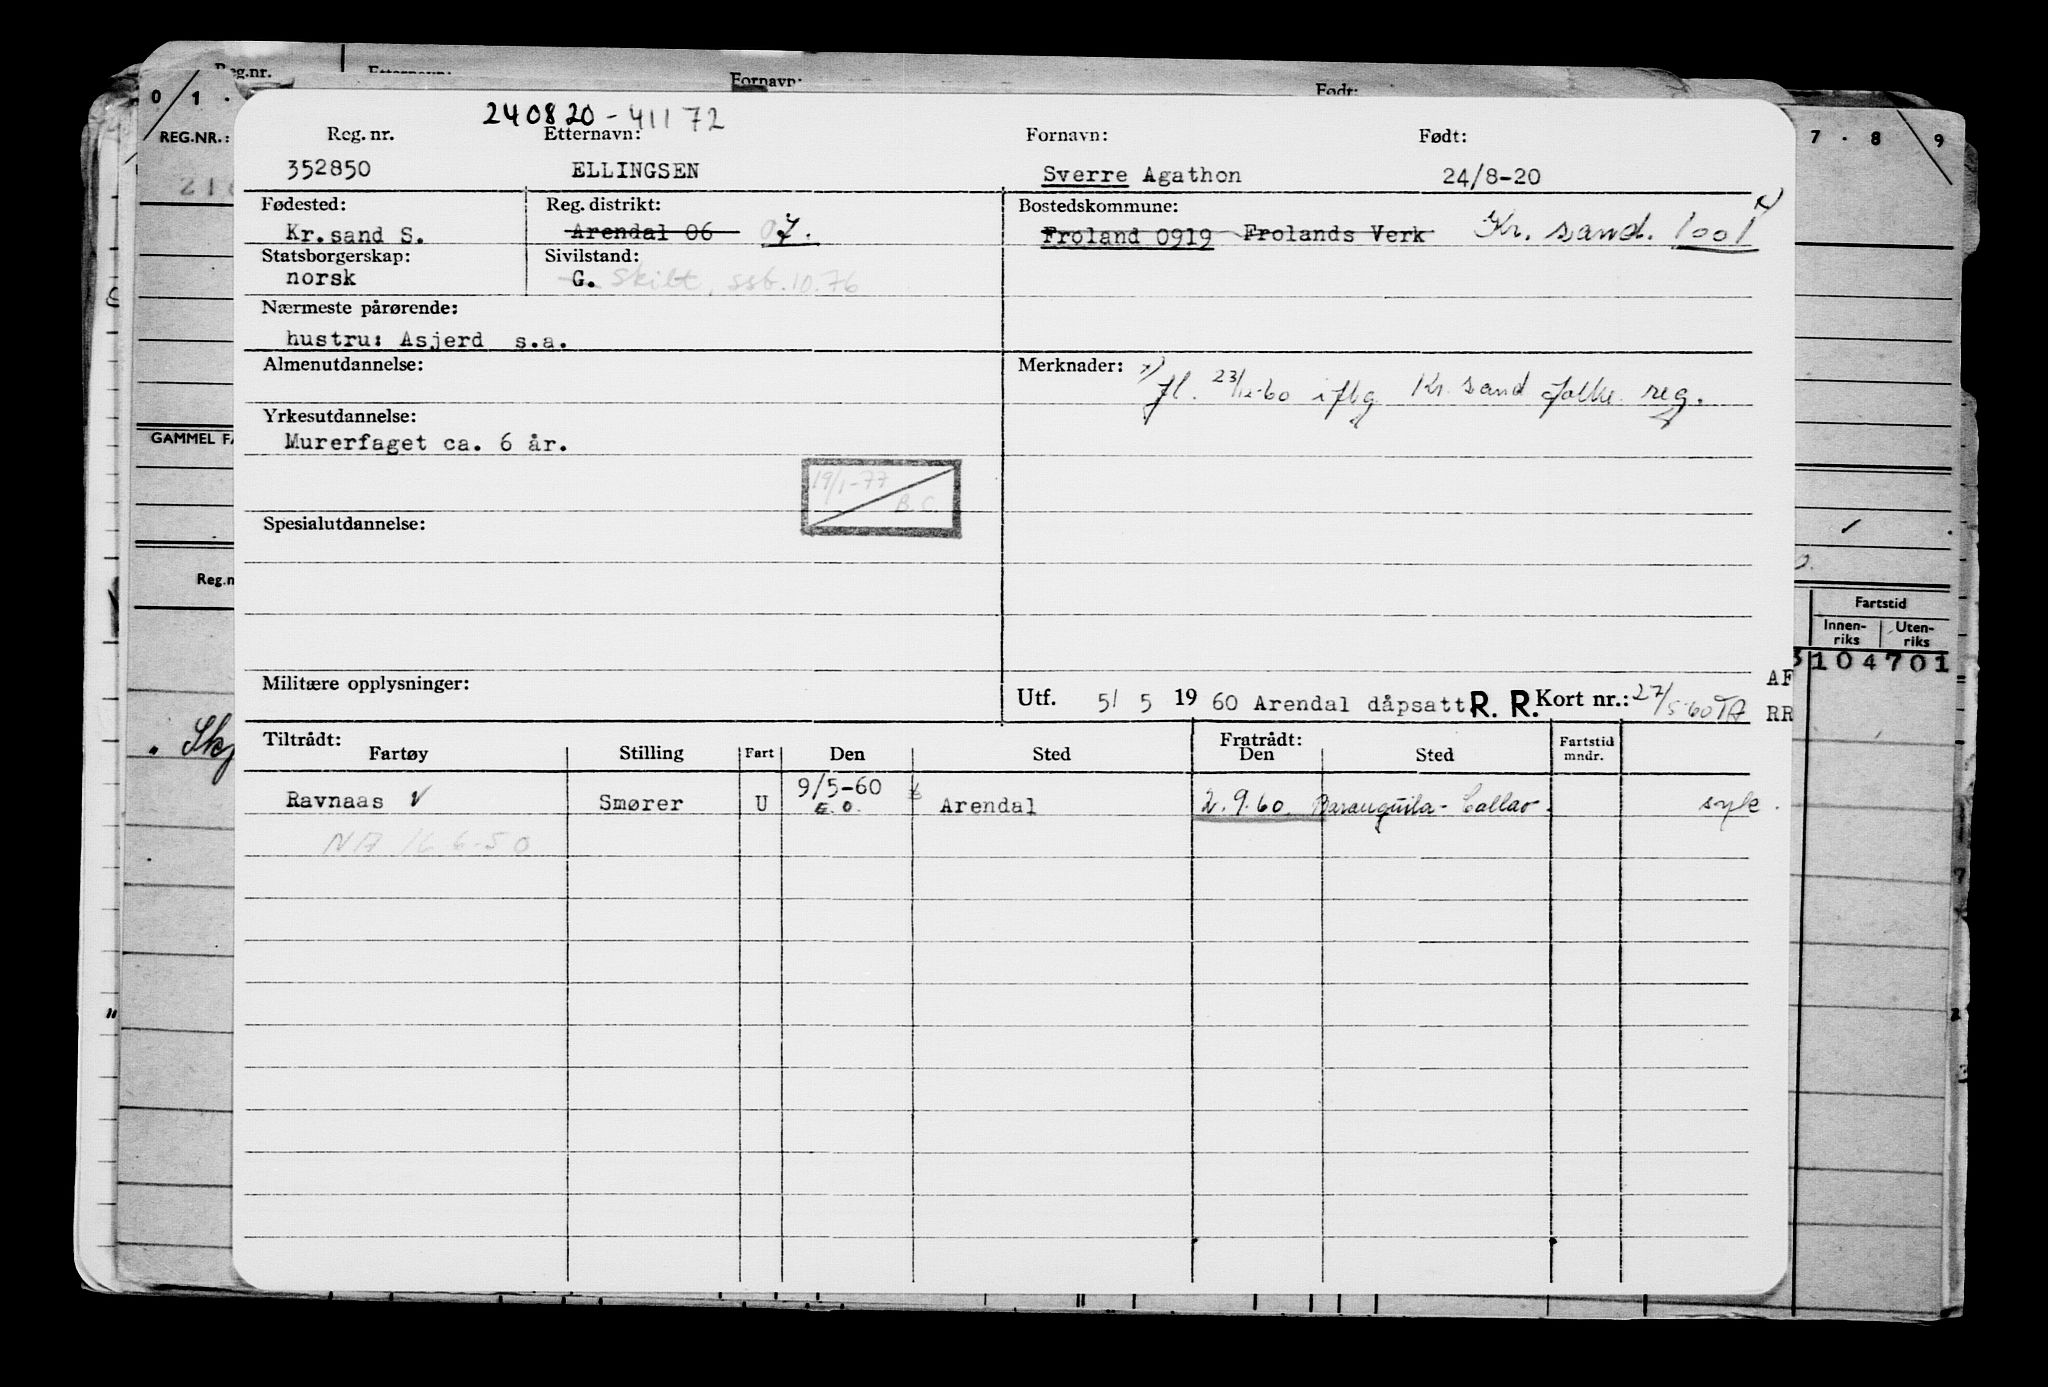 Reg.nr. Etternavn: Fornavn: Født:
0 1 . 7 . 8 9
REG.NR.:
240820-41172
Reg. nr. Etternavn: Fornavn: Født:
352850 ELLINGSEN Sverre Agathon 24/8-20
Fødested: Reg. distrikt: Bostedskommune:
Kr.sand S. Arendal 06 07. Froland 0919 Frolands Verk Kr. sand. 1001 x)
Statsborgerskap: Sivilstand:
norsk G. Skilt, ssb.10.76
Nærmeste pårørende:
hustru: Asjerd s.a.
Almenutdannelse: Merknader: x)
fl. 23/12-60 iflg Kr. sand folke reg.
Yrkesutdannelse:
Murerfaget ca. 6 år.
GAMMEL FA
19/1-77
B.C.
Spesialutdannelse:
Reg.n
Fartstid
Innen-riks Uten-riks
3 104701
Militære opplysninger: Utf. 5/ 5 19 60 Arendal dåpsatt R. R. Kort nr.: 27/5-60 TA
AF
RR
Tiltrådt: Fratrådt:
Fartøy Stilling Fart Den Sted Den Sted Fartstid mndr.
Ravnaas V Smører U 9/5-60 Arendal 2.9.60. Baranquila - Callao. syk.
E.O.
NA 16.6.50